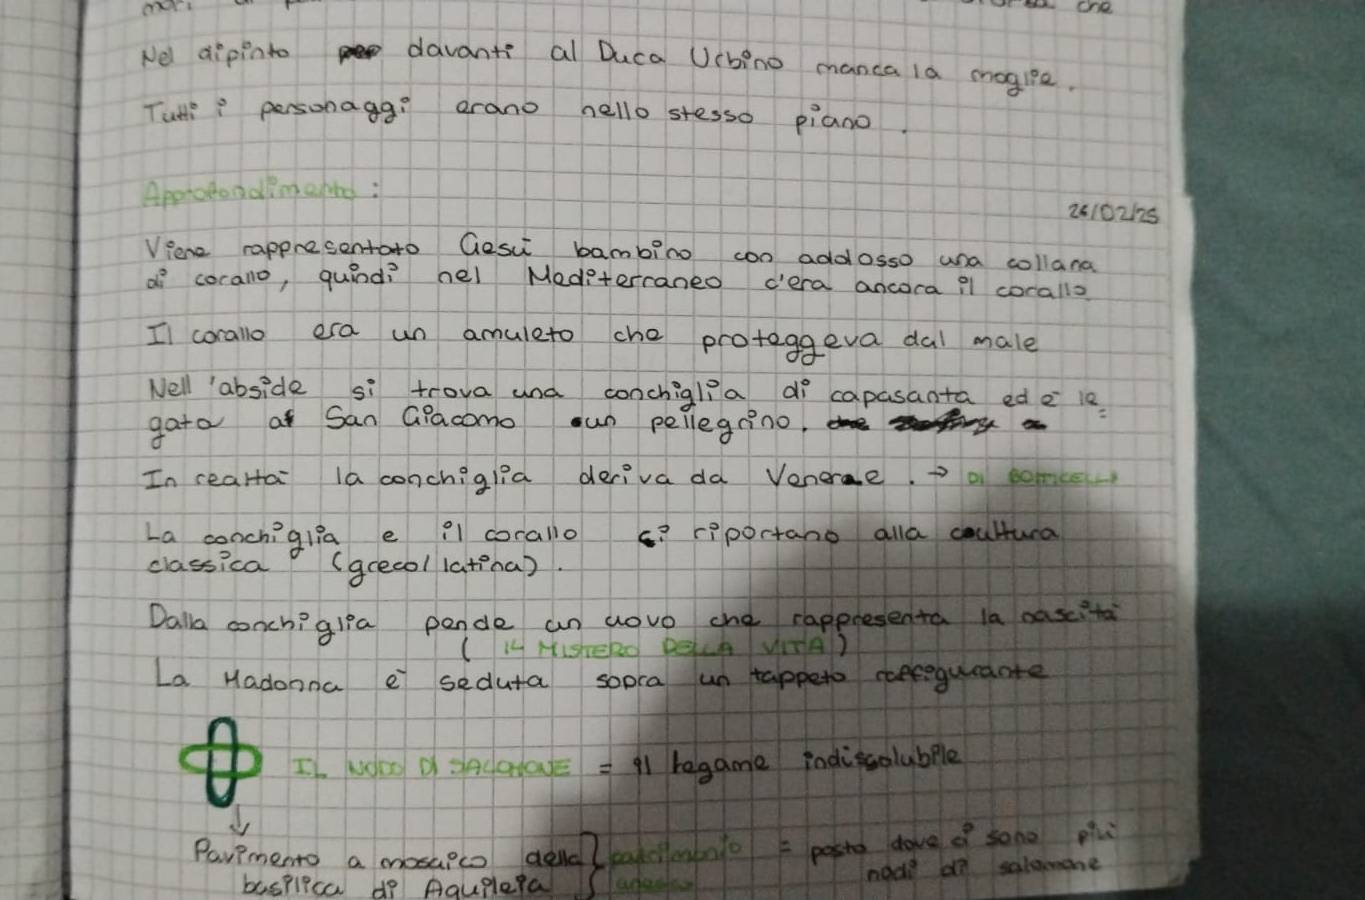 che
Nel dipinto davanti al Duca Urbino manca la moglie.
Tutti i personaggi erano nello stesso piano.
Approfondimento:
26/02/25
Viene rappresentato Gesù bambino con addosso una collana
di corallo, quindi nel Mediterraneo c'era ancora il corallo
Il corallo era un amuleto che proteggeva dal male
Nell'abside si trova una conchiglia di capasanta ed è le=
gata a San Giacomo un pellegrino.
In realtà la conchiglia deriva da Venere. → DI BOTTICELLI
La conchiglia e il corallo ci riportano alla coultura
classica (greco/latina).
Dalla conchiglia pende un uovo che rappresenta la nascita
( IL MISTERO DELLA VITA )
La Madonna è seduta sopra un tappeto raffigurante
IL NODO DI SALOMONE = il legame indissolubile
↓
Pavimento a mosaico della } patrimonio = posto dove ci sono più
basilica di Aquileia nodi di salomone